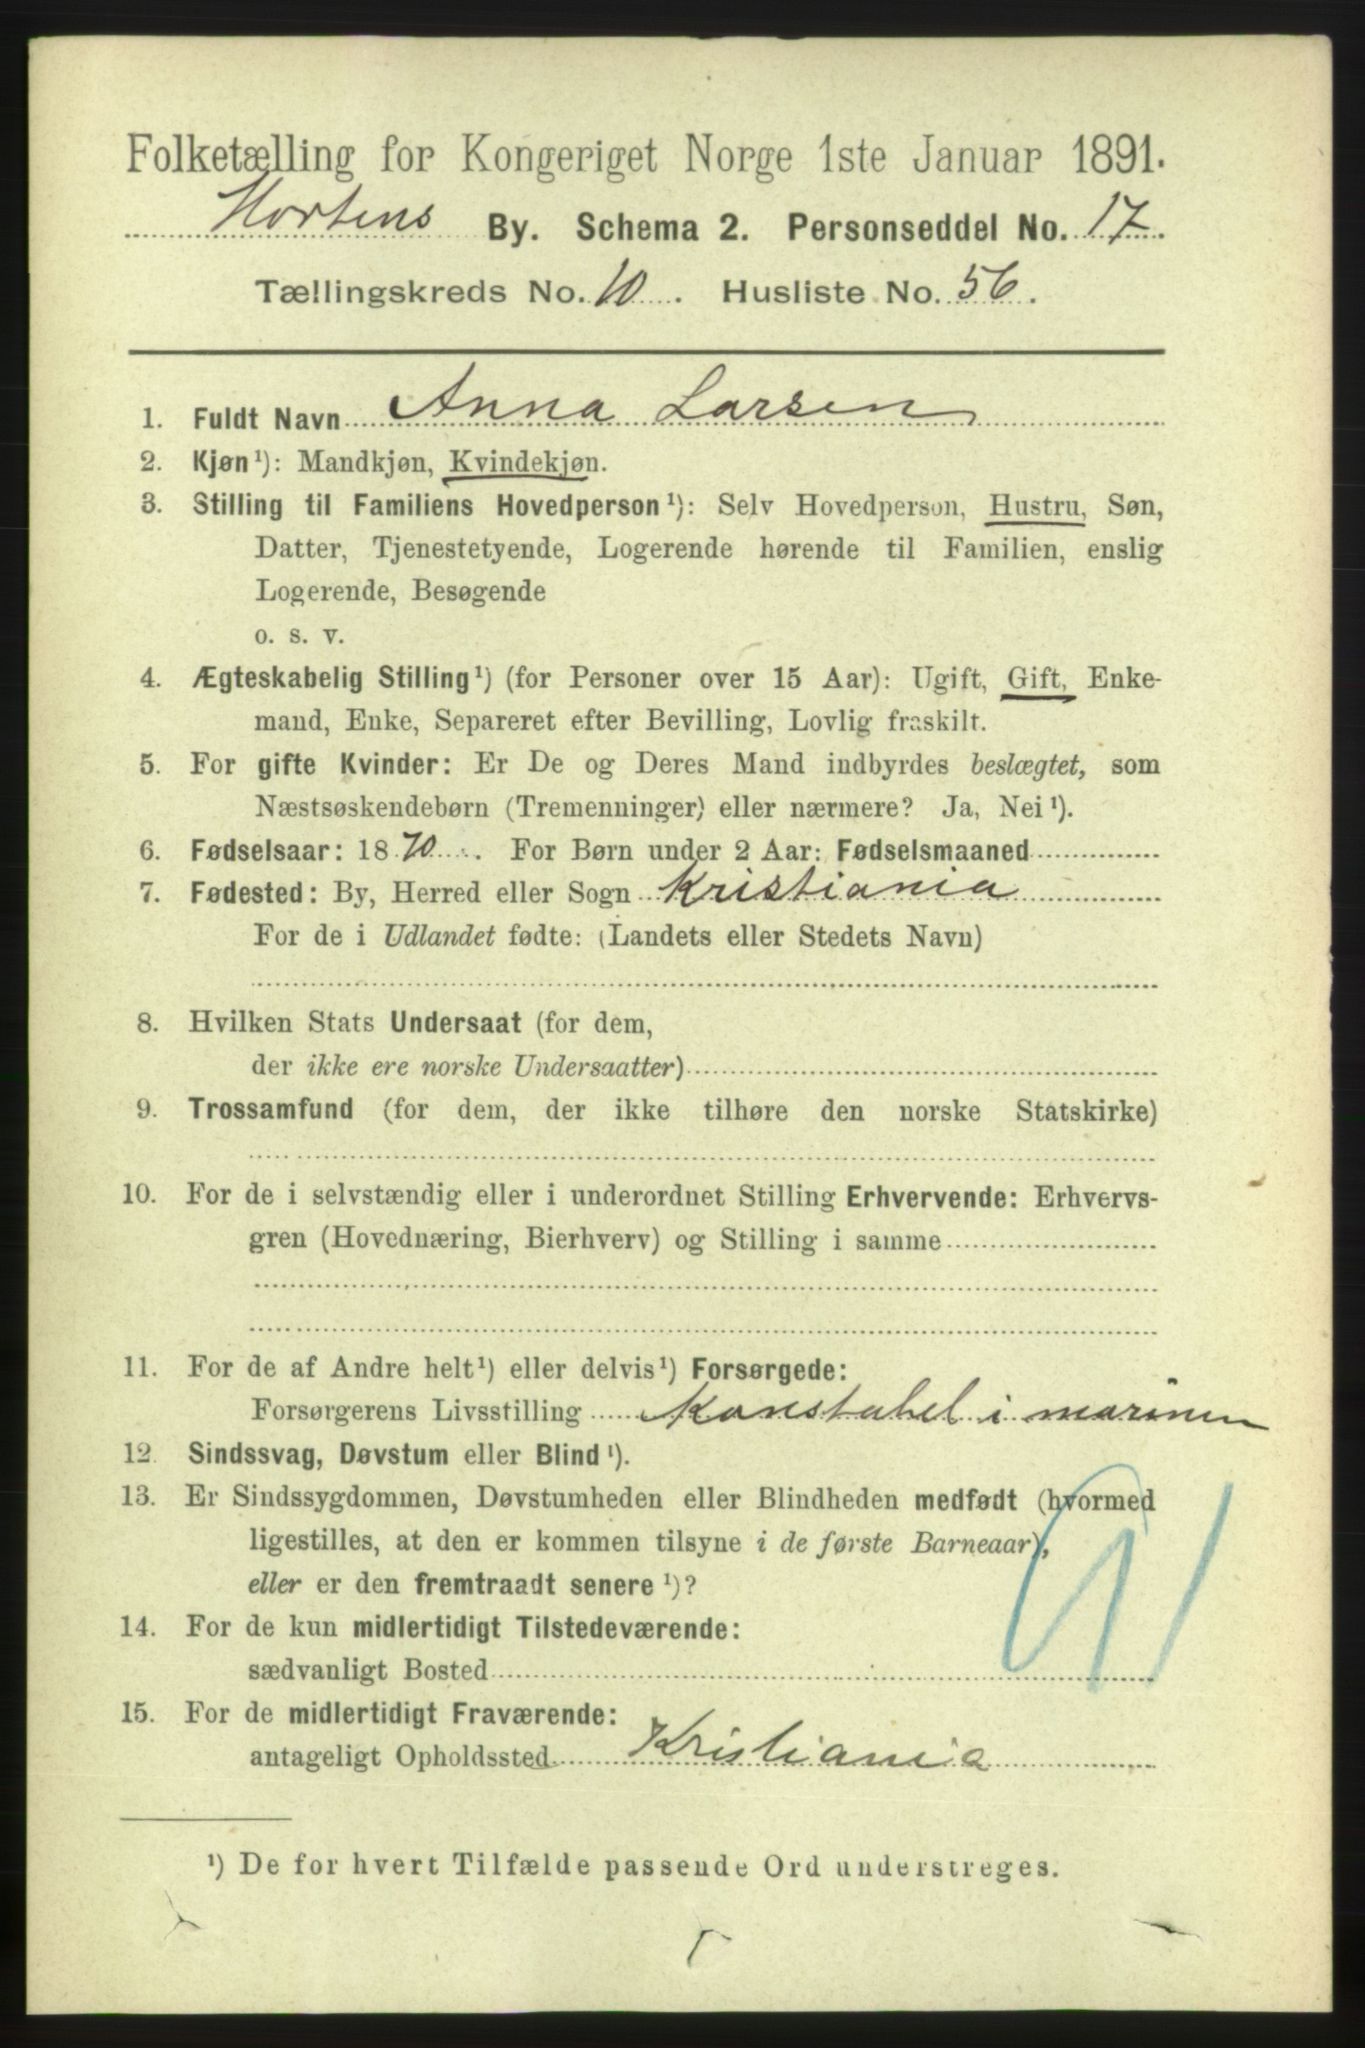 Folketælling for Kongeriget Norge 1ste Januar 1891.
Hortens By. Schema 2. Personseddel No. 17.
Tællingskreds No. 10. Husliste No. 56.
1. Fuldt Navn Anna Larsen
2. Kjøn ¹): Mandkjøn, Kvindekjøn.
3. Stilling til Familiens Hovedperson ¹): Selv Hovedperson, Hustru, Søn,
Datter, Tjenestetyende, Logerende hørende til Familien, enslig
Logerende, Besøgende
o. s. v.
4. Ægteskabelig Stilling ¹) (for Personer over 15 Aar): Ugift, Gift, Enke-
mand, Enke, Separeret efter Bevilling, Lovlig fraskilt.
5. For gifte Kvinder: Er De og Deres Mand indbyrdes beslægtet, som
Næstsøskendebørn (Tremenninger) eller nærmere? Ja, Nei ¹).
6. Fødselsaar: 1870. For Børn under 2 Aar: Fødselsmaaned
7. Fødested: By, Herred eller Sogn Kristiania
For de i Udlandet fødte: (Landets eller Stedets Navn)
8. Hvilken Stats Undersaat (for dem,
der ikke ere norske Undersaatter)
9. Trossamfund (for dem, der ikke tilhøre den norske Statskirke)
10. For de i selvstændig eller i underordnet Stilling Erhvervende: Erhvervs-
gren (Hovednæring, Bierhverv) og Stilling i samme
11. For de af Andre helt ¹) eller delvis ¹) Forsørgede:
Forsørgerens Livsstilling Konstabel i marinen
12. Sindssvag, Døvstum eller Blind ¹).
13. Er Sindssygdommen, Døvstumheden eller Blindheden medfødt (hvormed
ligestilles, at den er kommen tilsyne i de første Barneaar),
eller er den fremtraadt senere ¹)?
14. For de kun midlertidigt Tilstedeværende:
sædvanligt Bosted
15. For de midlertidigt Fraværende:
antageligt Opholdssted Kristiania
¹) De for hvert Tilfælde passende Ord understreges.